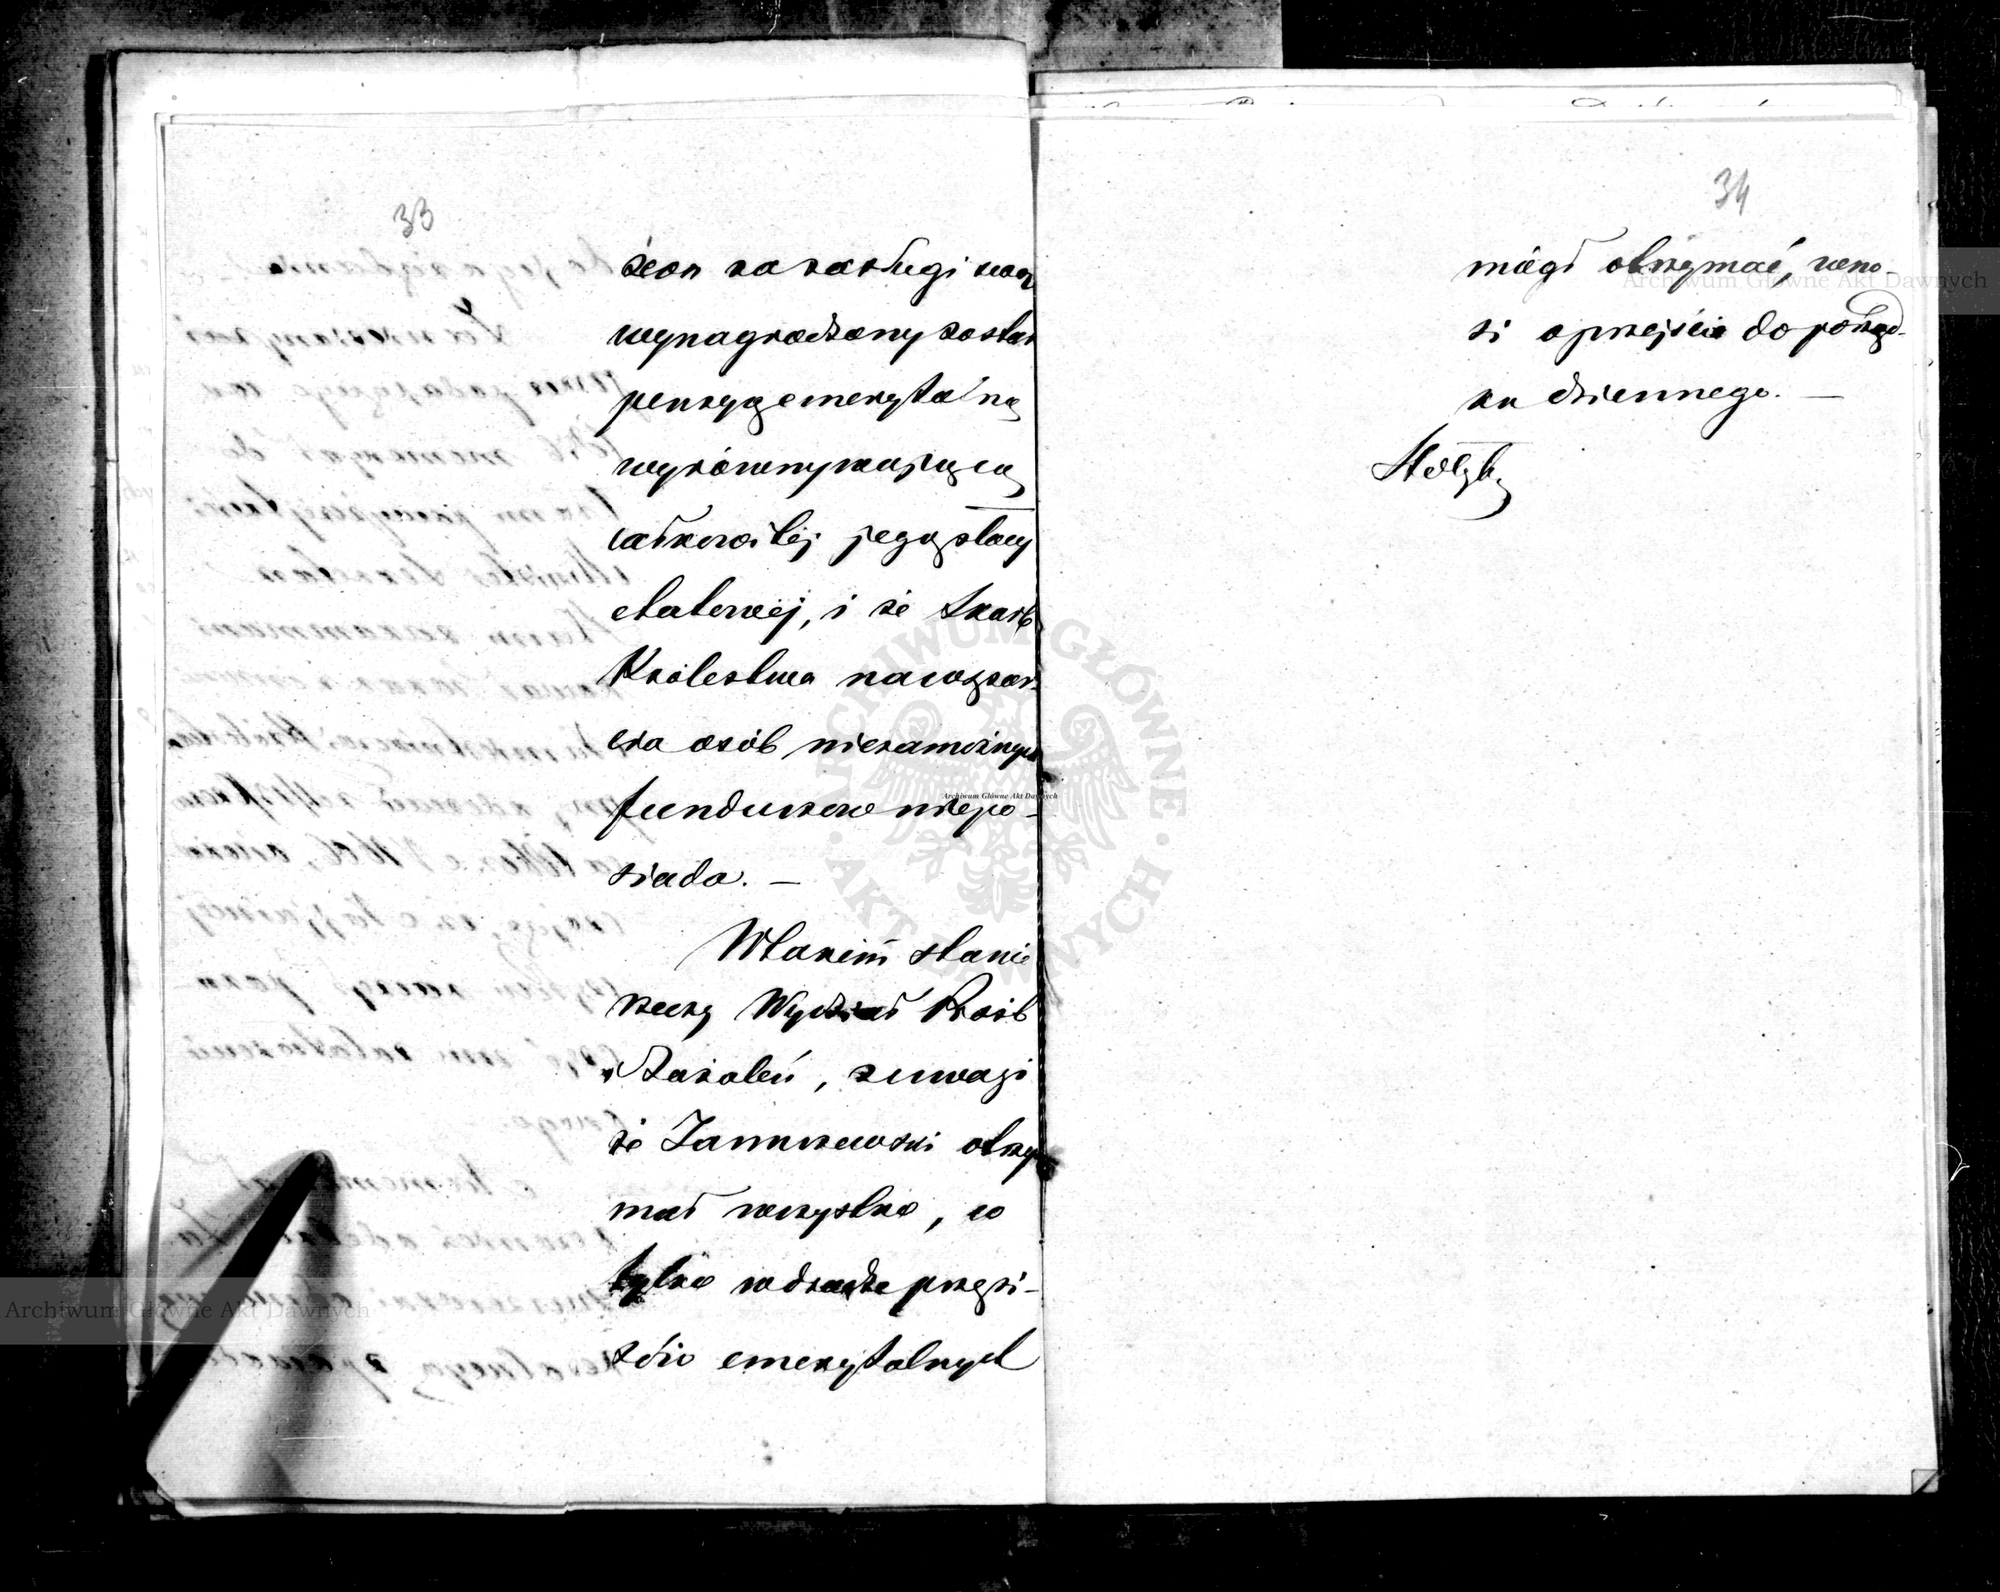 33
żeon za zasługi swe
wynagrodzony został
pensyą emerytalną
wyrównywającą
całkowitej jego płacy
etatowej, i że Skarb
Królestwa na wspar-
cia osób niezamożnych
funduszow niepo-
siada. —
W takim stanie
rzeczy Wydział Próśb
i Zażaleń, z uwagi
że Januszewski otrzy
mał wszystko, co
tylko wdrodze przepi-
sów emerytalnych
34
mógł otrzymać, wno-
si o przejście do porząd-
ku dziennego. —
Archiwum Główne Akt Dawnych
Archiwum Główne Akt Dawnych
Archiwum Główne Akt Dawnych
ARCHIWUM GŁÓWNE AKT DAWNYCH